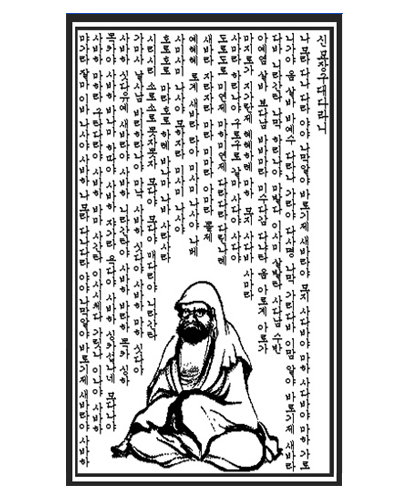 신묘장구대다라니
나모라 다나다라 야야 나막알야 바로기제 새바라야 모지 사다바야 마하 사다바야 마하 가로
니가야 옴 살바 바예수 다라나 가라야 다사명 나막 가리다바 이맘 알야 바로기제 새바라
다바 니라간타 나막 하리나야 마발다 이사미 살발타 사다남 수반
아예염 살바 보다남 바바말아 미수다감 다냐타 옴 아로계 아로가
마지로가 지가란제 혜혜하례 마하 모지 사다바 사마라
사마라 하리나야 구로구로 갈마 사다야 사다야
도로도로 미연제 마하 미연제 다라다라 다린나례
새바라 자라자라 마라 미마라 아마라 몰제
예혜혜 로계 새바라 라아 미사미 나사야 나베
사미사미 나사야 모하자라 미사미 나사야
호로호로 마라호로 하례 바나마 나바 사라사라
시리시리 소로소로 못쟈못쟈 모다야 모다야 매다리야 니라간타
가마사 날사남 바라하라나야 마낙 사바하 싯다야 사바하 마하 싯다야
사바하 싯다유예 새바라야 사바하 니라간타야 사바하 바라하 목카 싱하
목카야 사바하 바나마 하따야 사바하 자가라 욕다야 사바하 상카섭나네 모다나야
사바하 마하라 구타다라야 사바하 바마사간타 이사시체다 가릿나 이나야 사바하
먀가라 잘마 이바 사나야 사바하 나모라 다나다라 야야 나막알야 바로기제 새바라야 사바하